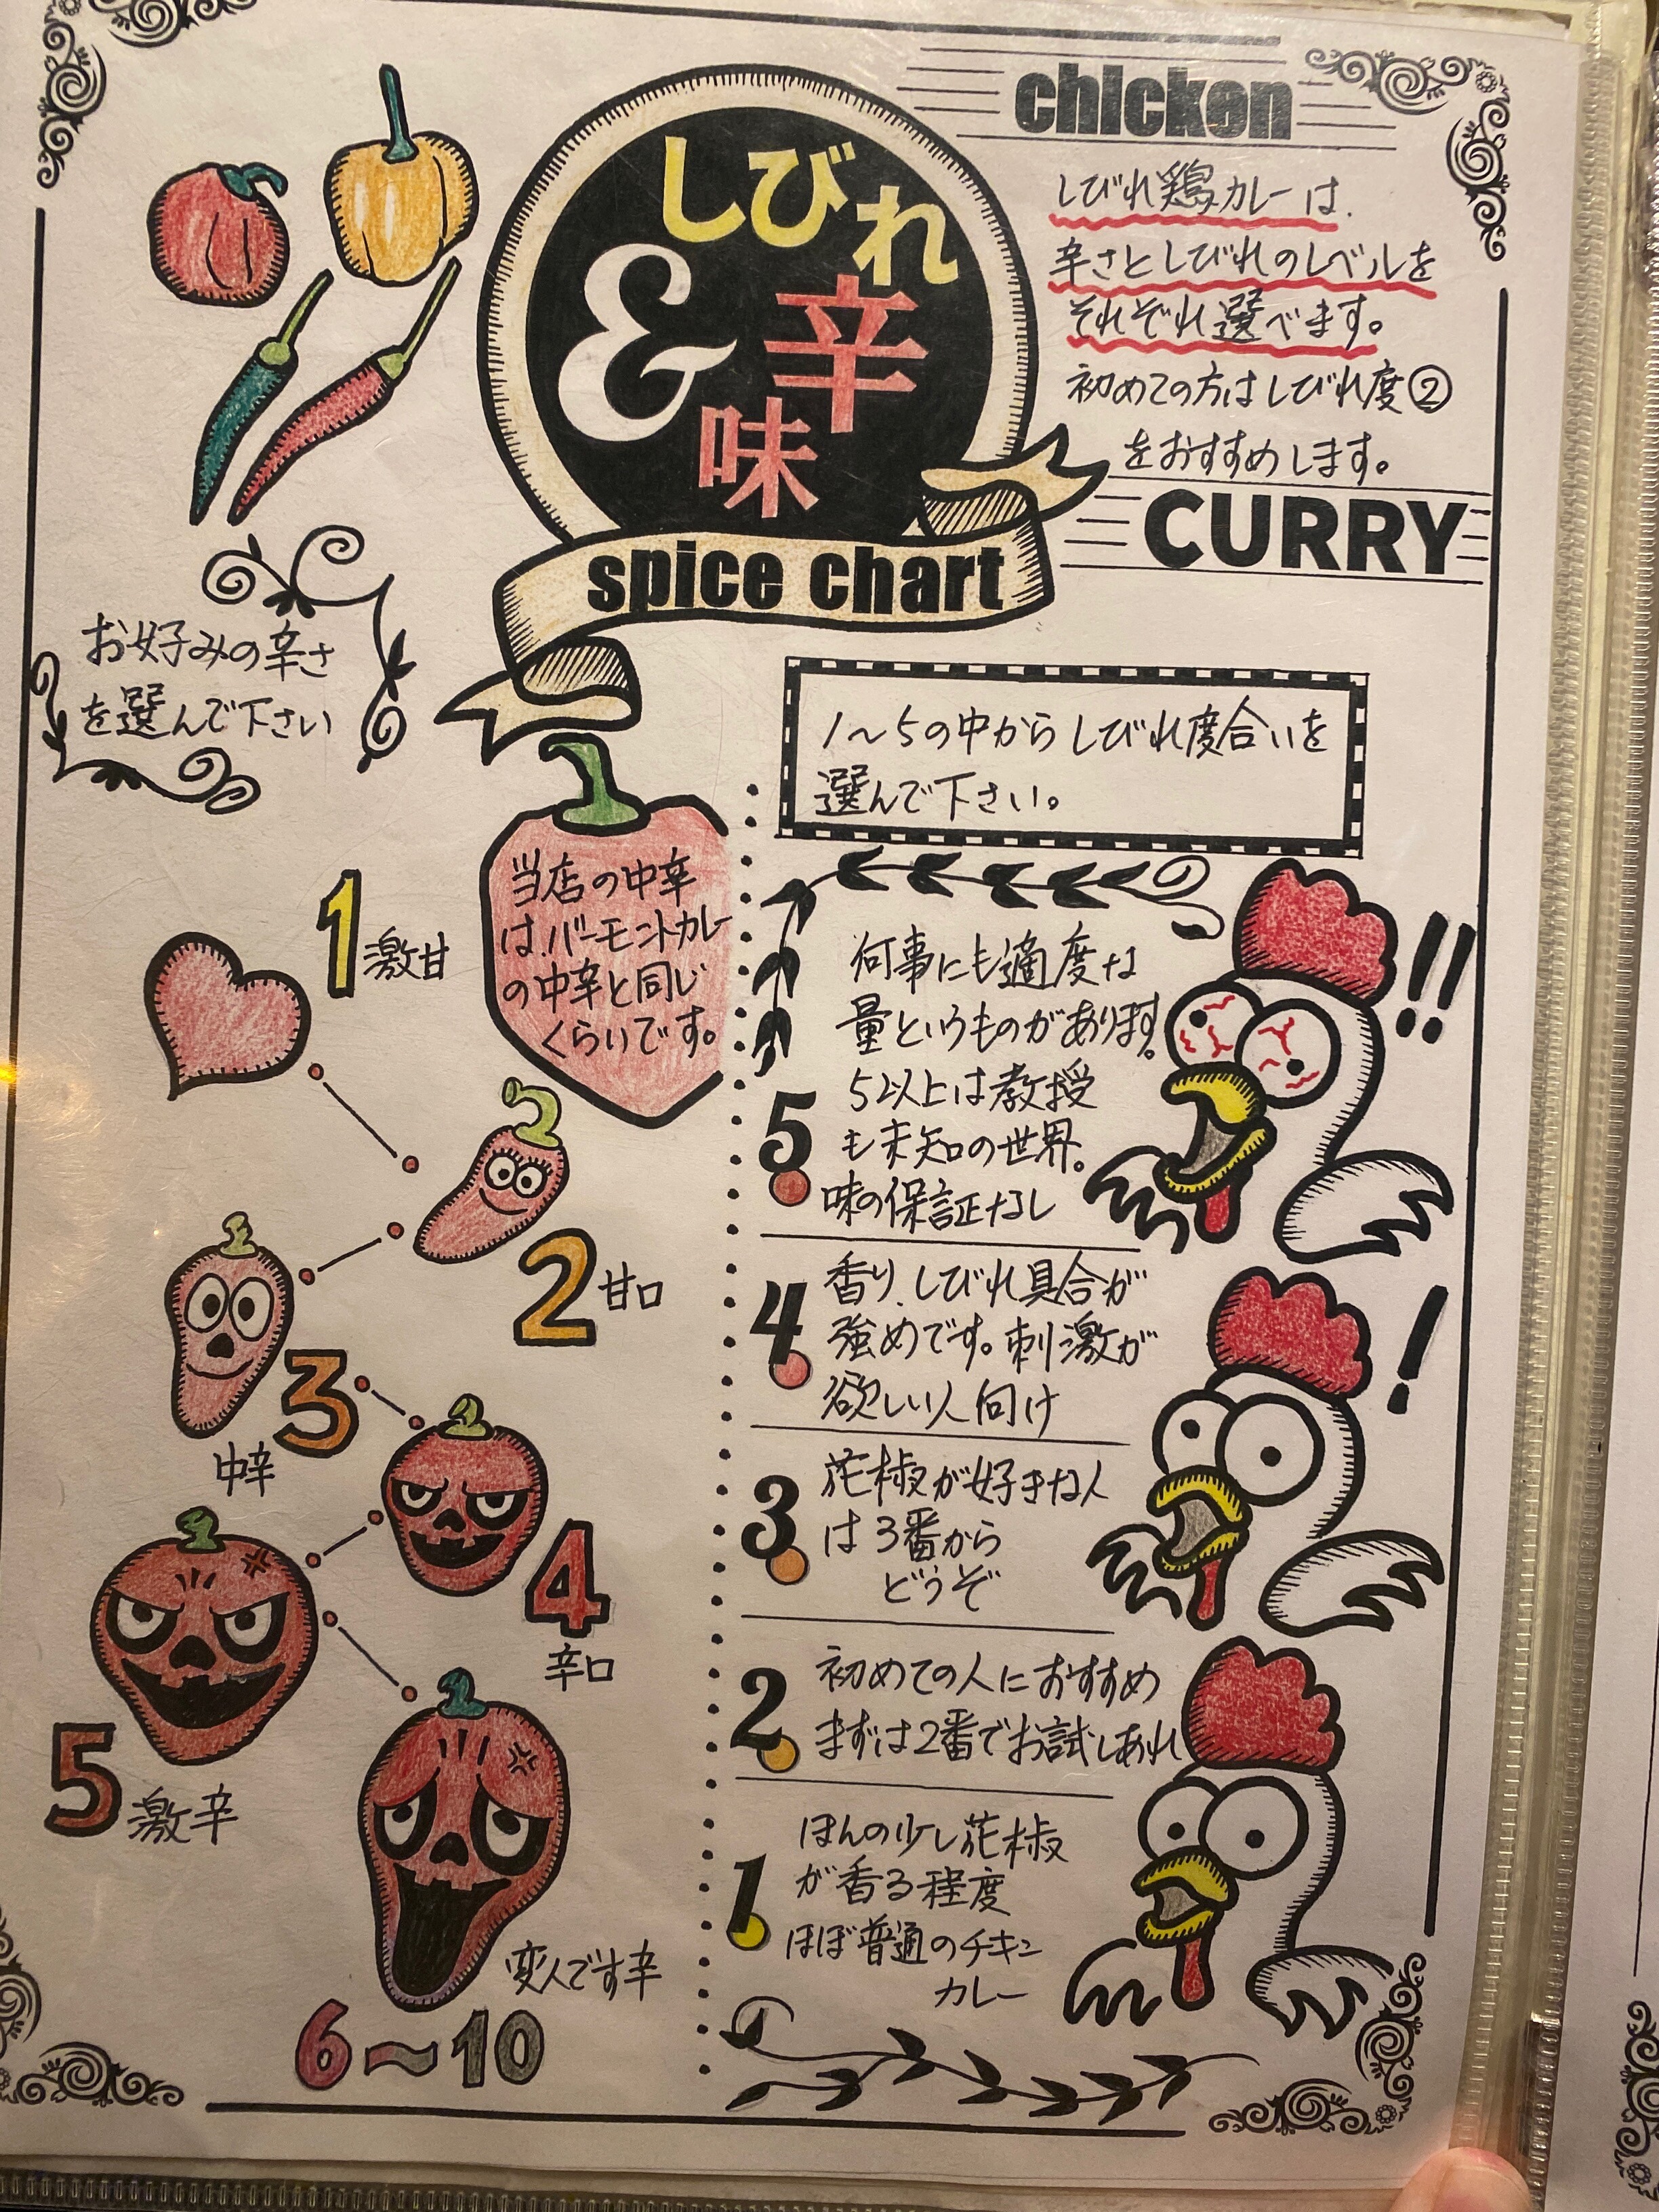 chicken
しびれ
&
辛
味
spice chart
しびれ鶏カレーは、
辛さとしびれのレベルを
それぞれ選べます。
初めての方はしびれ度②
をおすすめします。
CURRY
お好みの辛さ
を選んで下さい
当店の中辛
は、バーモントカレー
の中辛と同じ
くらいです。
1 激甘
2 甘口
3
中辛
4
辛口
5 激辛
変人です辛
6～10
1～5の中からしびれ度合いを
選んで下さい。
何事にも適度な
量というものがあります。
5以上は教授
も未知の世界。
味の保証なし
5
!!
香り、しびれ具合が
強めです。刺激が
欲しい人向け
4
!
花椒が好きな人
は3番から
どうぞ
3
初めての人におすすめ
まずは2番でお試しあれ
2
ほんの少し花椒
が香る程度
ほぼ普通のチキン
カレー
1